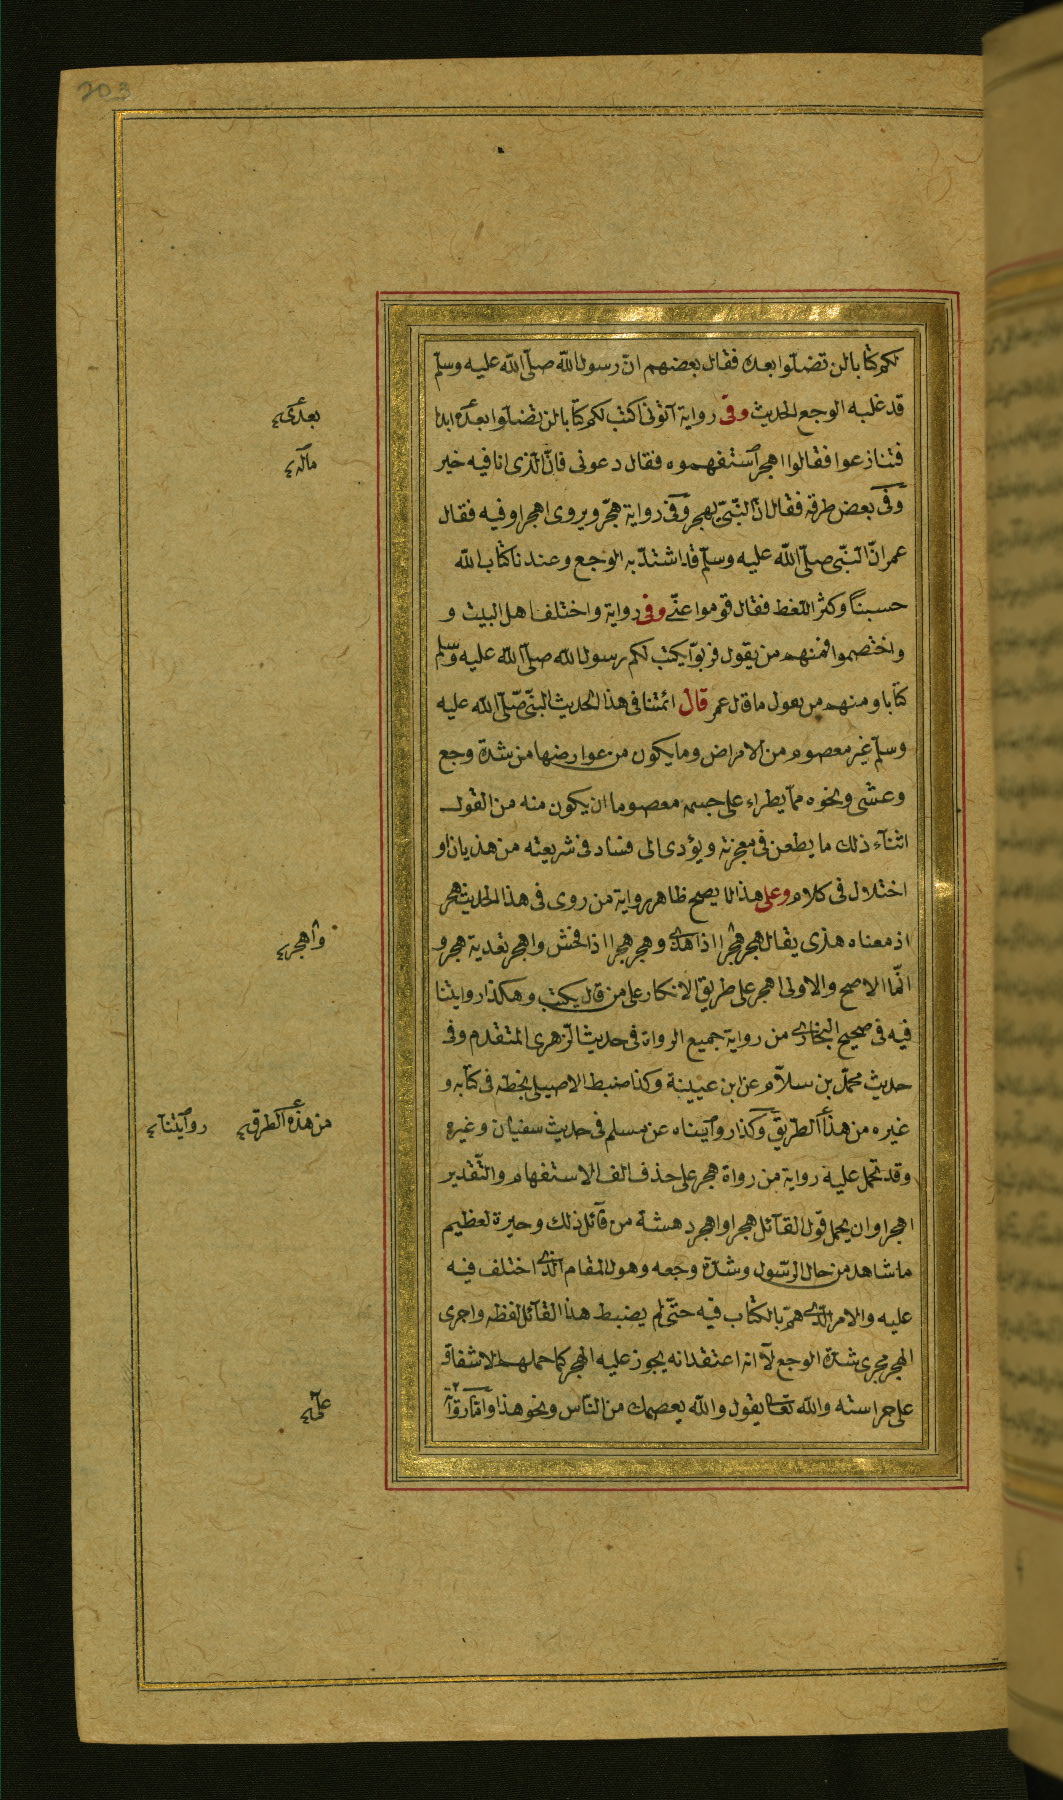 203
لكم كتابا لن تضلوا بعده فقال بعضهم ان رسول الله صلى الله عليه وسلم
قد غلبه الوجع الحديث وفى رواية آتونى اكتب لكم كتابا لن تضلوا بعده ابدا
فتنازعوا فقالوا اهجر استفهموه فقال دعونى فان الذى انا فيه خير
وفى بعض طرقه فقال ان النبى يهجر وفى رواية هجر ويروى اهجر او فيه فقال
عمر ان النبى صلى الله عليه وسلم قد اشتد به الوجع وعندنا كتاب الله
حسبنا وكثر اللغط فقال قوموا عنى وفى رواية واختلف اهل البيت و
واختصموا فمنهم من يقول قربوا يكتب لكم رسول الله صلى الله عليه وسلم
كتابا ومنهم من يقول ما قال عمر قال ائمتنا فى هذا الحديث النبى صلى الله عليه
وسلم غير معصوم من الامراض وما يكون من عوارضها من شدة وجع
وغشى ونحوه مما يطراء على جسمه معصوما ان يكون منه من القول
اثناء ذلك ما يطعن فى معجزته ويؤدى الى فساد فى شريعته من هذيان او
اختلال فى كلام وعلى هذا لا يصح ظاهر رواية من روى فى هذا الحديث هجر
اذ معناه هذى يقال هجر هجرا اذا هذى وهجر هجرا اذا فحش واهجر تعدية هجر و
انما الاصح والاولى اهجر على طريق الانكار على من قال يكتب وهكذا روايتنا
فيه فى صحيح البخارى من رواية جميع الرواة فى حديث الزهرى المتقدم وفى
حديث محمد بن سلام عن ابن عيينة وكذا ضبط الاصيلى بخطه فى كتابه و
غيره من هذا الطريق وكذا رويناه عن مسلم فى حديث سفيان وغيره
وقد تحمل عليه رواية من رواة هجر على حذف الف الاستفهام والتقدير
اهجر او ان يحمل قول القائل هجر او اهجر دهشة من قائل ذلك وحيرة لعظيم
ما شاهد من حال الرسول وشدة وجعه وهول المقام الذى اختلف فيه
عليه والامر الذى هم بالكتاب فيه حتى لم يضبط هذا القائل لفظه واجرى
الهجر مجرى شدة الوجع لا انه اعتقد انه يجوز عليه الهجر كما حملهم الاشفاق
على حراسته والله تعالى يقول والله يعصمك من الناس ونحو هذا واما
بعدى
ماله
واهجر
من هذه الطرق
روايتنا
على